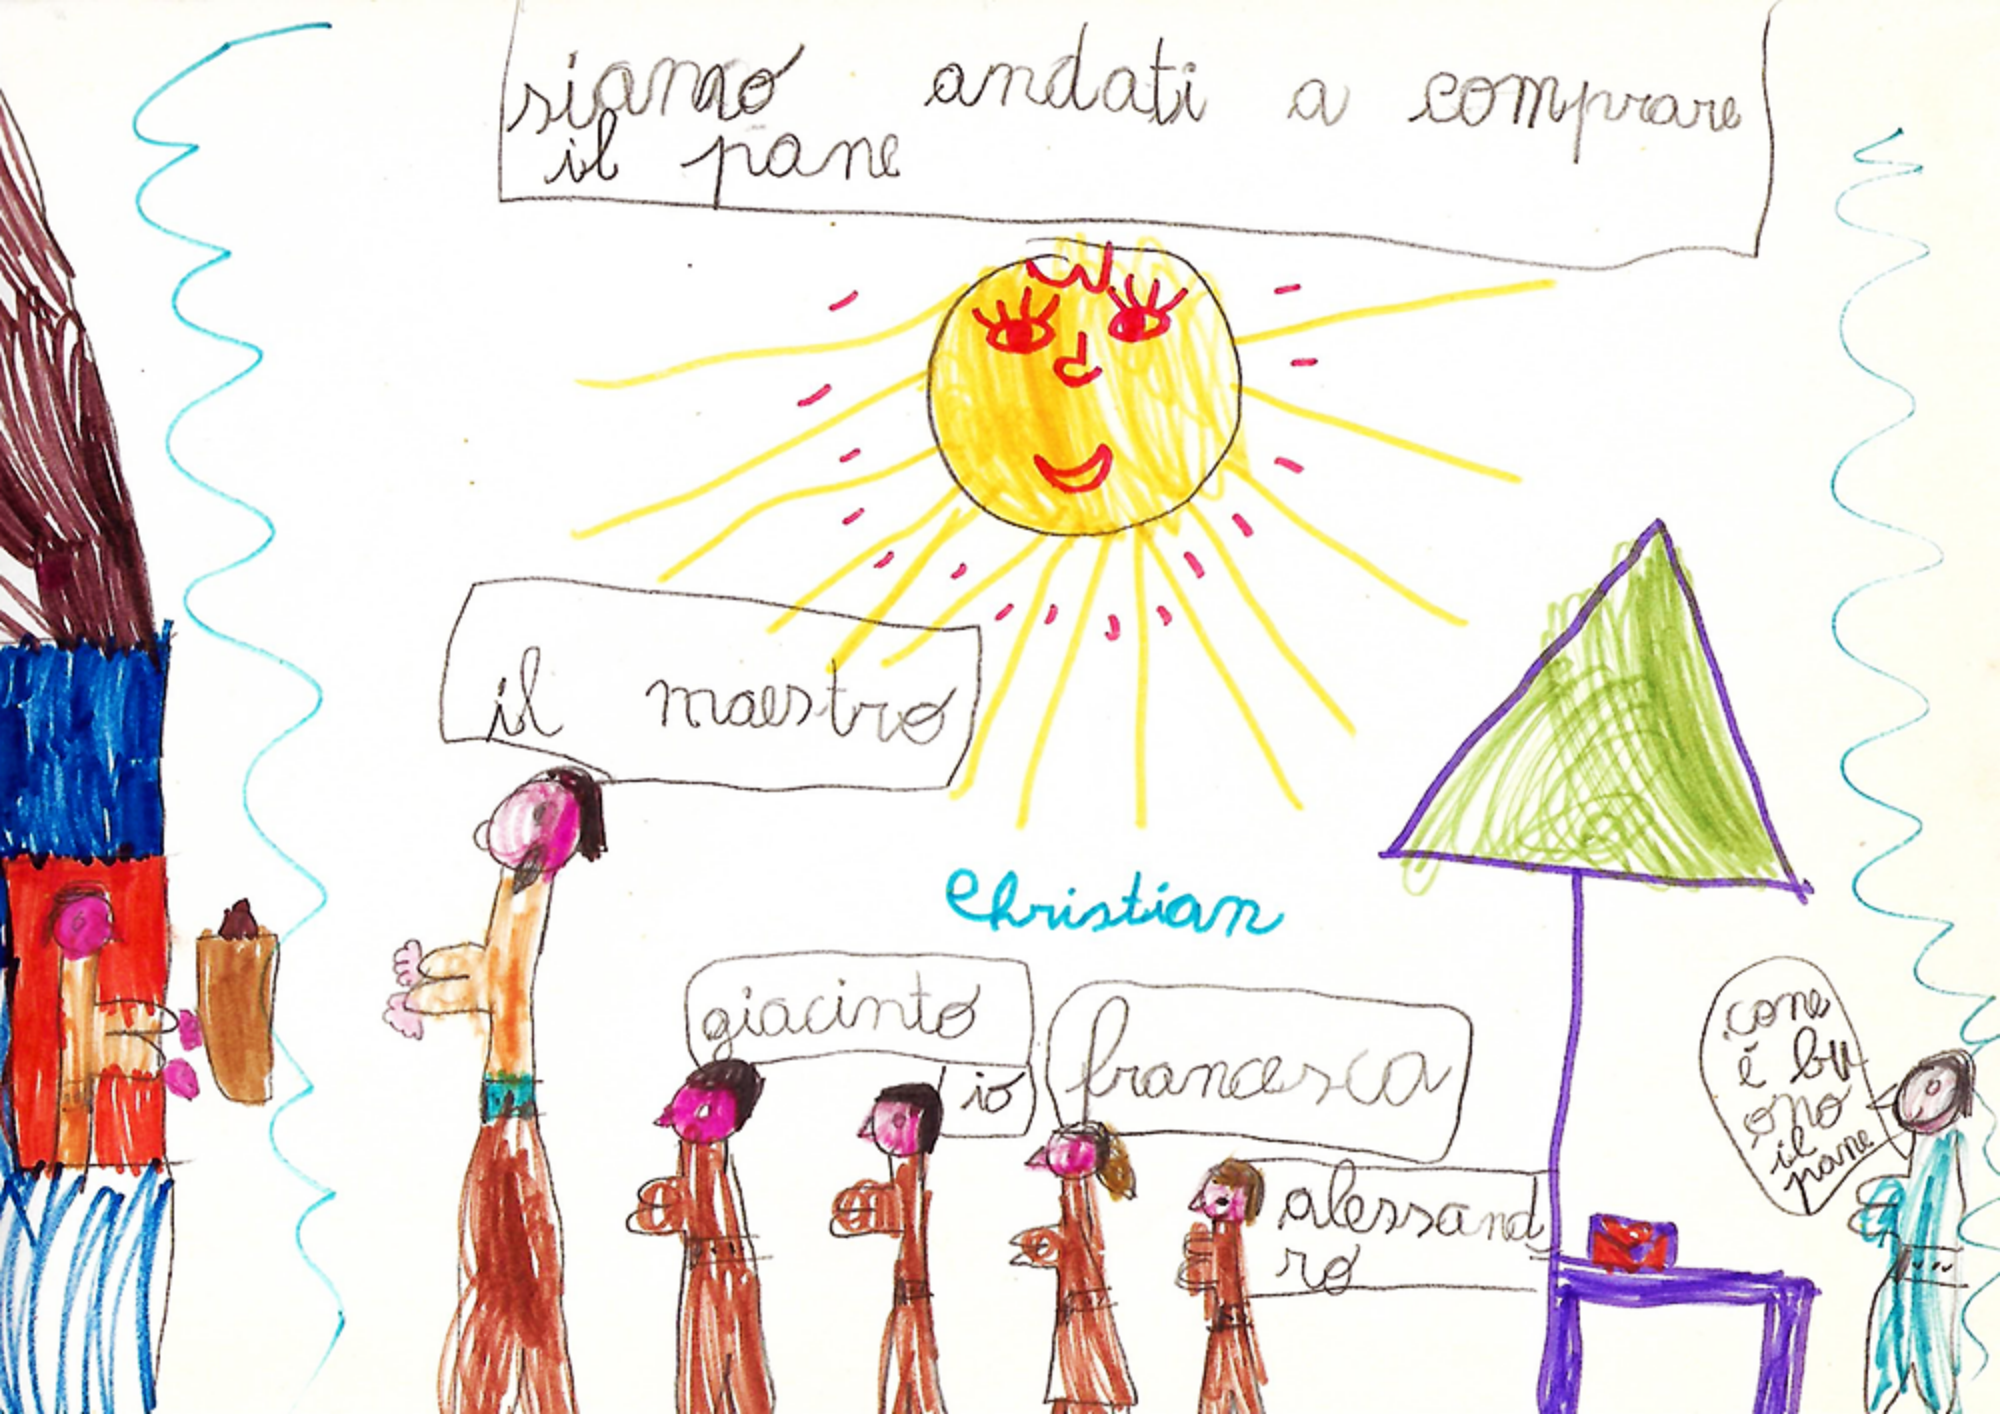 siamo andati a comprare
il pane
il maestro
Christian
giacinto
io
francesca
alessand
ro
come
è bu
ono
il
pane